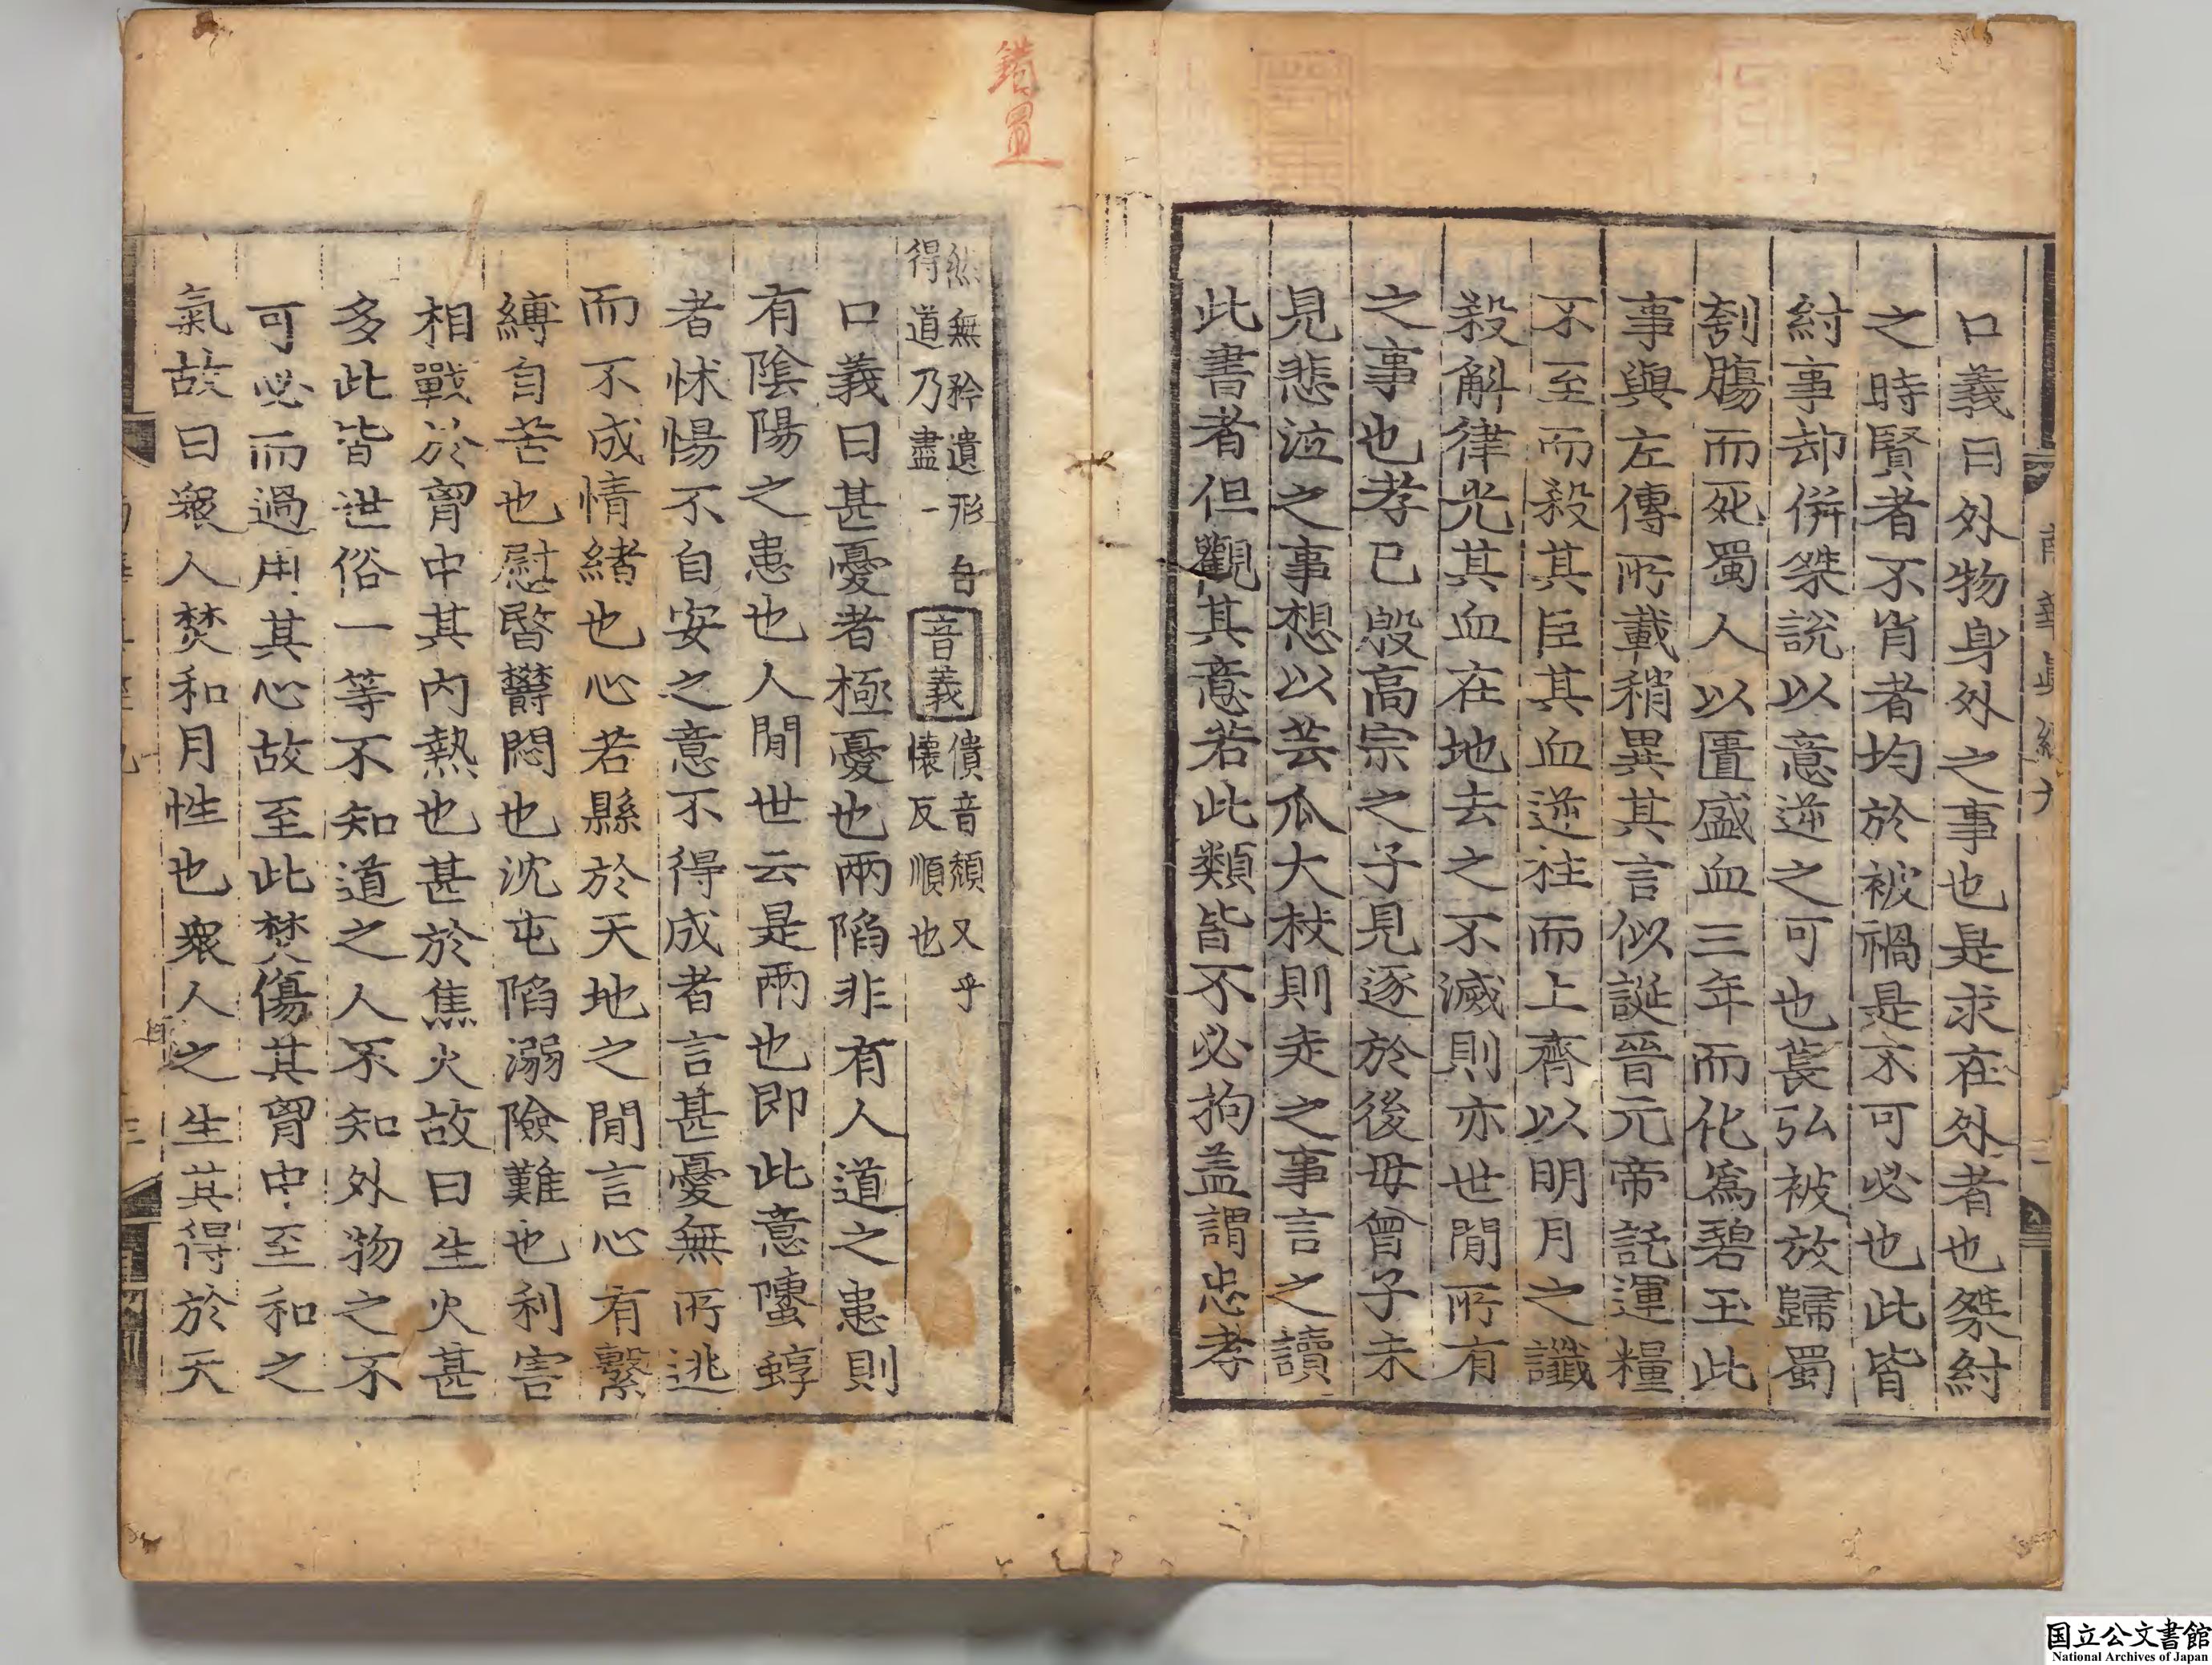 南華眞經九
二
口義曰外物身外之事也是求在外者也桀紂
之時賢者不肖者均於被禍是不可必也此皆
紂事却併桀說以意逆之可也萇弘被放歸蜀
刳膓而死蜀人以匱盛血三年而化爲碧玉此
事與左傳所載稍異其言似誕晉元帝託運糧
不至而殺其臣其血逆柱而上齊以明月之讖
殺斛律光其血在地去之不滅則亦世間所有
之事也孝己殷高宗之子見逐於後母曾子未
見悲泣之事想以芸瓜大杖則走之事言之讀
此書者但觀其意若此類皆不必拘盖謂忠孝
錯置
然無矜遺形自
得道乃盡一
音義
僓音頽又乎
懐反順也
口義曰甚憂者極憂也兩陷非有人道之患則
有陰陽之患也人間世云是兩也即此意螴蜳
者怵惕不自安之意不得成者言甚憂無所逃
而不成情緒也心若縣於天地之間言心有繫
縛自苦也慰暋欝悶也沈屯陷溺險難也利害
相戰於胷中其內熱也甚於焦火故曰生火甚
多此皆世俗一等不知道之人不知外物之不
可必而過用其心故至此焚傷其胷中至和之
氣故曰衆人焚和月性也衆人之生其得於天
三
国立公文書館
National Archives of Japan